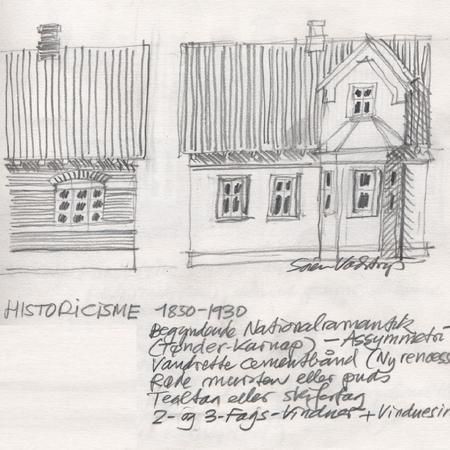 Søren Vadstrup
HISTORICISME 1850-1930
Begyndende Nationalromantik
(Tønder-Karnap) - Assymmetri
Vandrette cementbånd (Nyrenæss
Røde mursten eller puds
Tegltag eller skifertag
2- og 3-Fags-Vinduer + Vinduesin